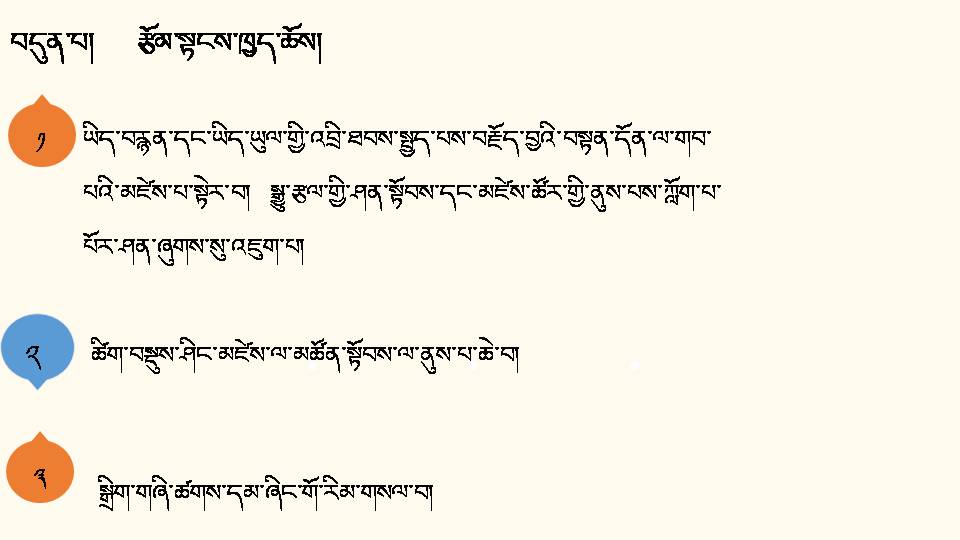 བདུན་པ།     རྩོམ་སྟངས་ཁྱད་ཆོས།
༡ ཡིད་བརྙན་དང་ཡིད་ཡུལ་གྱི་འབྲི་ཐབས་སྤྱད་པས་བརྗོད་བྱའི་བསྟན་དོན་ལ་གབ་
པའི་མཛེས་པ་སྟེར་བ།   སྒྱུ་རྩལ་གྱི་ཤན་སྟོབས་དང་མཛེས་ཚོར་གྱི་ནུས་པས་ཀློག་པ་
པོར་ཤན་ཞུགས་སུ་འཇུག་པ།
༢ ཚིག་བསྡུས་ཤིང་མཛེས་ལ་མཚོན་སྟོབས་ལ་ནུས་པ་ཆེ་བ།
༣ སྒྲིག་གཞི་ཚགས་དམ་ཞིང་གོ་རིམ་གསལ་བ།